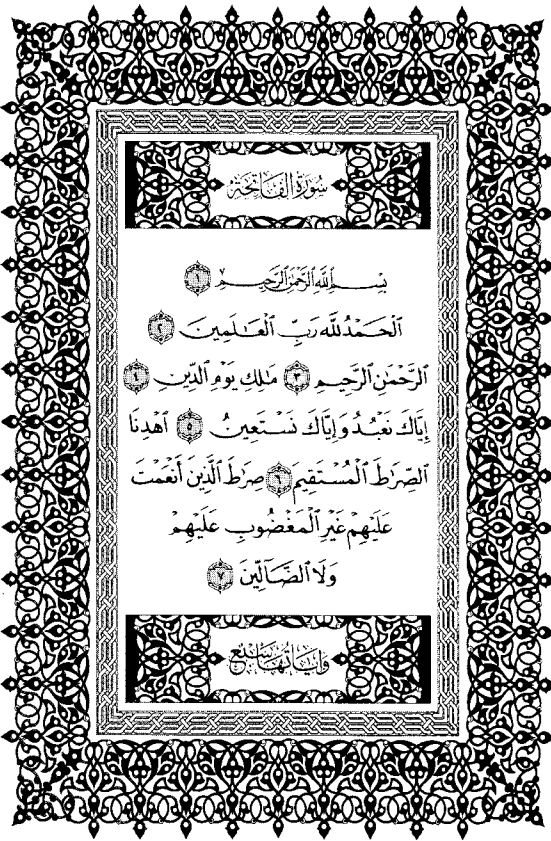 سُورَةُ الفَاتِحَة
بِسْمِ ٱللَّهِ ٱلرَّحْمَٰنِ ٱلرَّحِيمِ ١
ٱلْحَمْدُ لِلَّهِ رَبِّ ٱلْعَٰلَمِينَ ٢
ٱلرَّحْمَٰنِ ٱلرَّحِيمِ ٣ مَٰلِكِ يَوْمِ ٱلدِّينِ ٤
إِيَّاكَ نَعْبُدُ وَإِيَّاكَ نَسْتَعِينُ ٥ ٱهْدِنَا
ٱلصِّرَٰطَ ٱلْمُسْتَقِيمَ ٦ صِرَٰطَ ٱلَّذِينَ أَنْعَمْتَ
عَلَيْهِمْ غَيْرِ ٱلْمَغْضُوبِ عَلَيْهِمْ
وَلَا ٱلضَّآلِّينَ ٧
وَآيَاتُهَا سَبْع